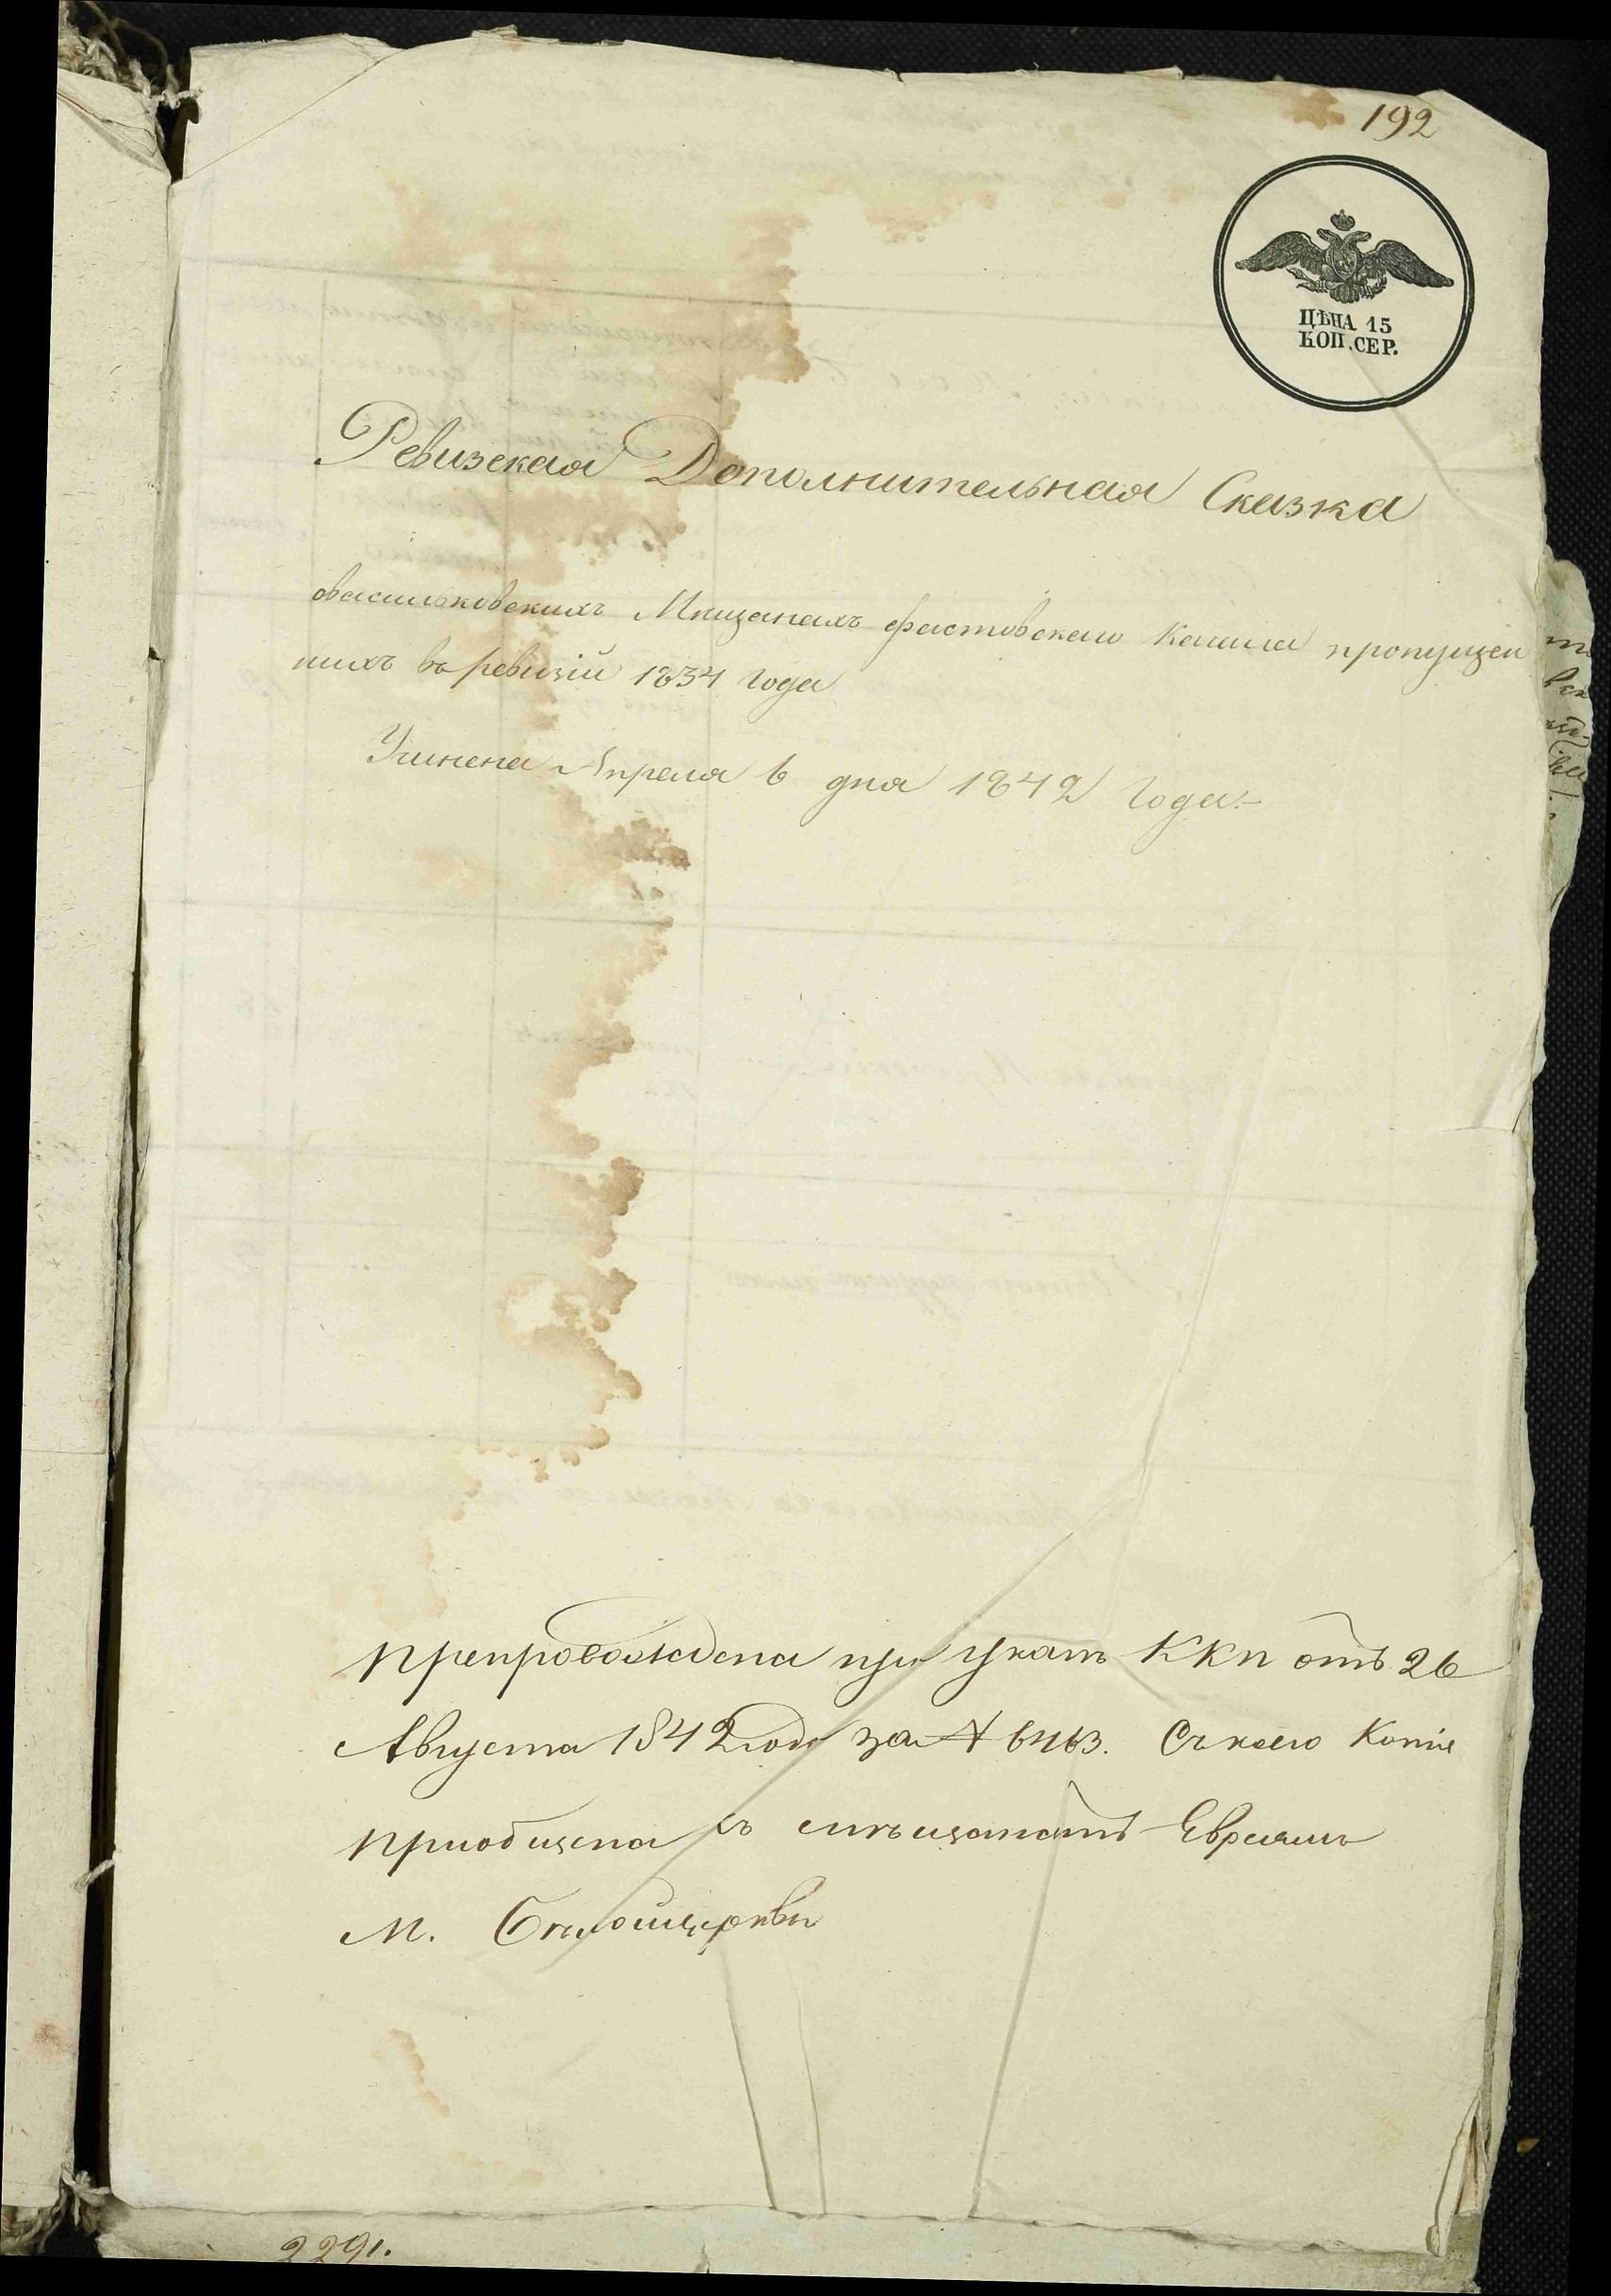 192
ЦѢНА 15
КОП. СЕР.
Ревизская Дополнительная Сказка
овасильковскихъ Мищанахъ фастовскаго Кагала пропущен
ныхъ въ ревизій 1834 года
Учинена Апреля 6 дня 1842 Года
препровождена при указѣ ККП отъ 26
Августа 1842 года за № 6463. Съ коего Копія
приобщена къ Евреямъ
М. Бѣлойцеркви
2291.